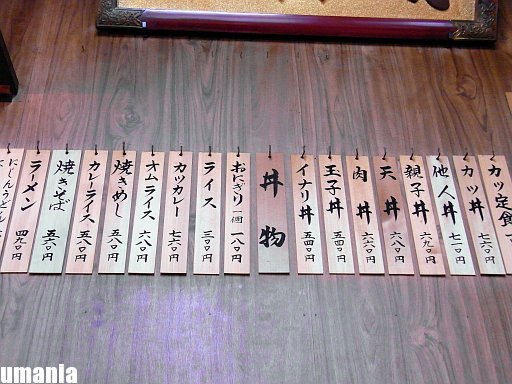 カツ定食
カツ丼 七六〇円
他人丼 七一〇円
親子丼 六九〇円
天丼 六八〇円
肉丼 六六〇円
玉子丼 五四〇円
イナリ丼 五四〇円
丼物
おにぎり 一個 一八〇円
ライス 三〇〇円
カツカレー 七六〇円
オムライス 六八〇円
焼きめし 五八〇円
カレーライス 五八〇円
焼きそば 五六〇円
ラーメン 四九〇円
にしんうどん
umania